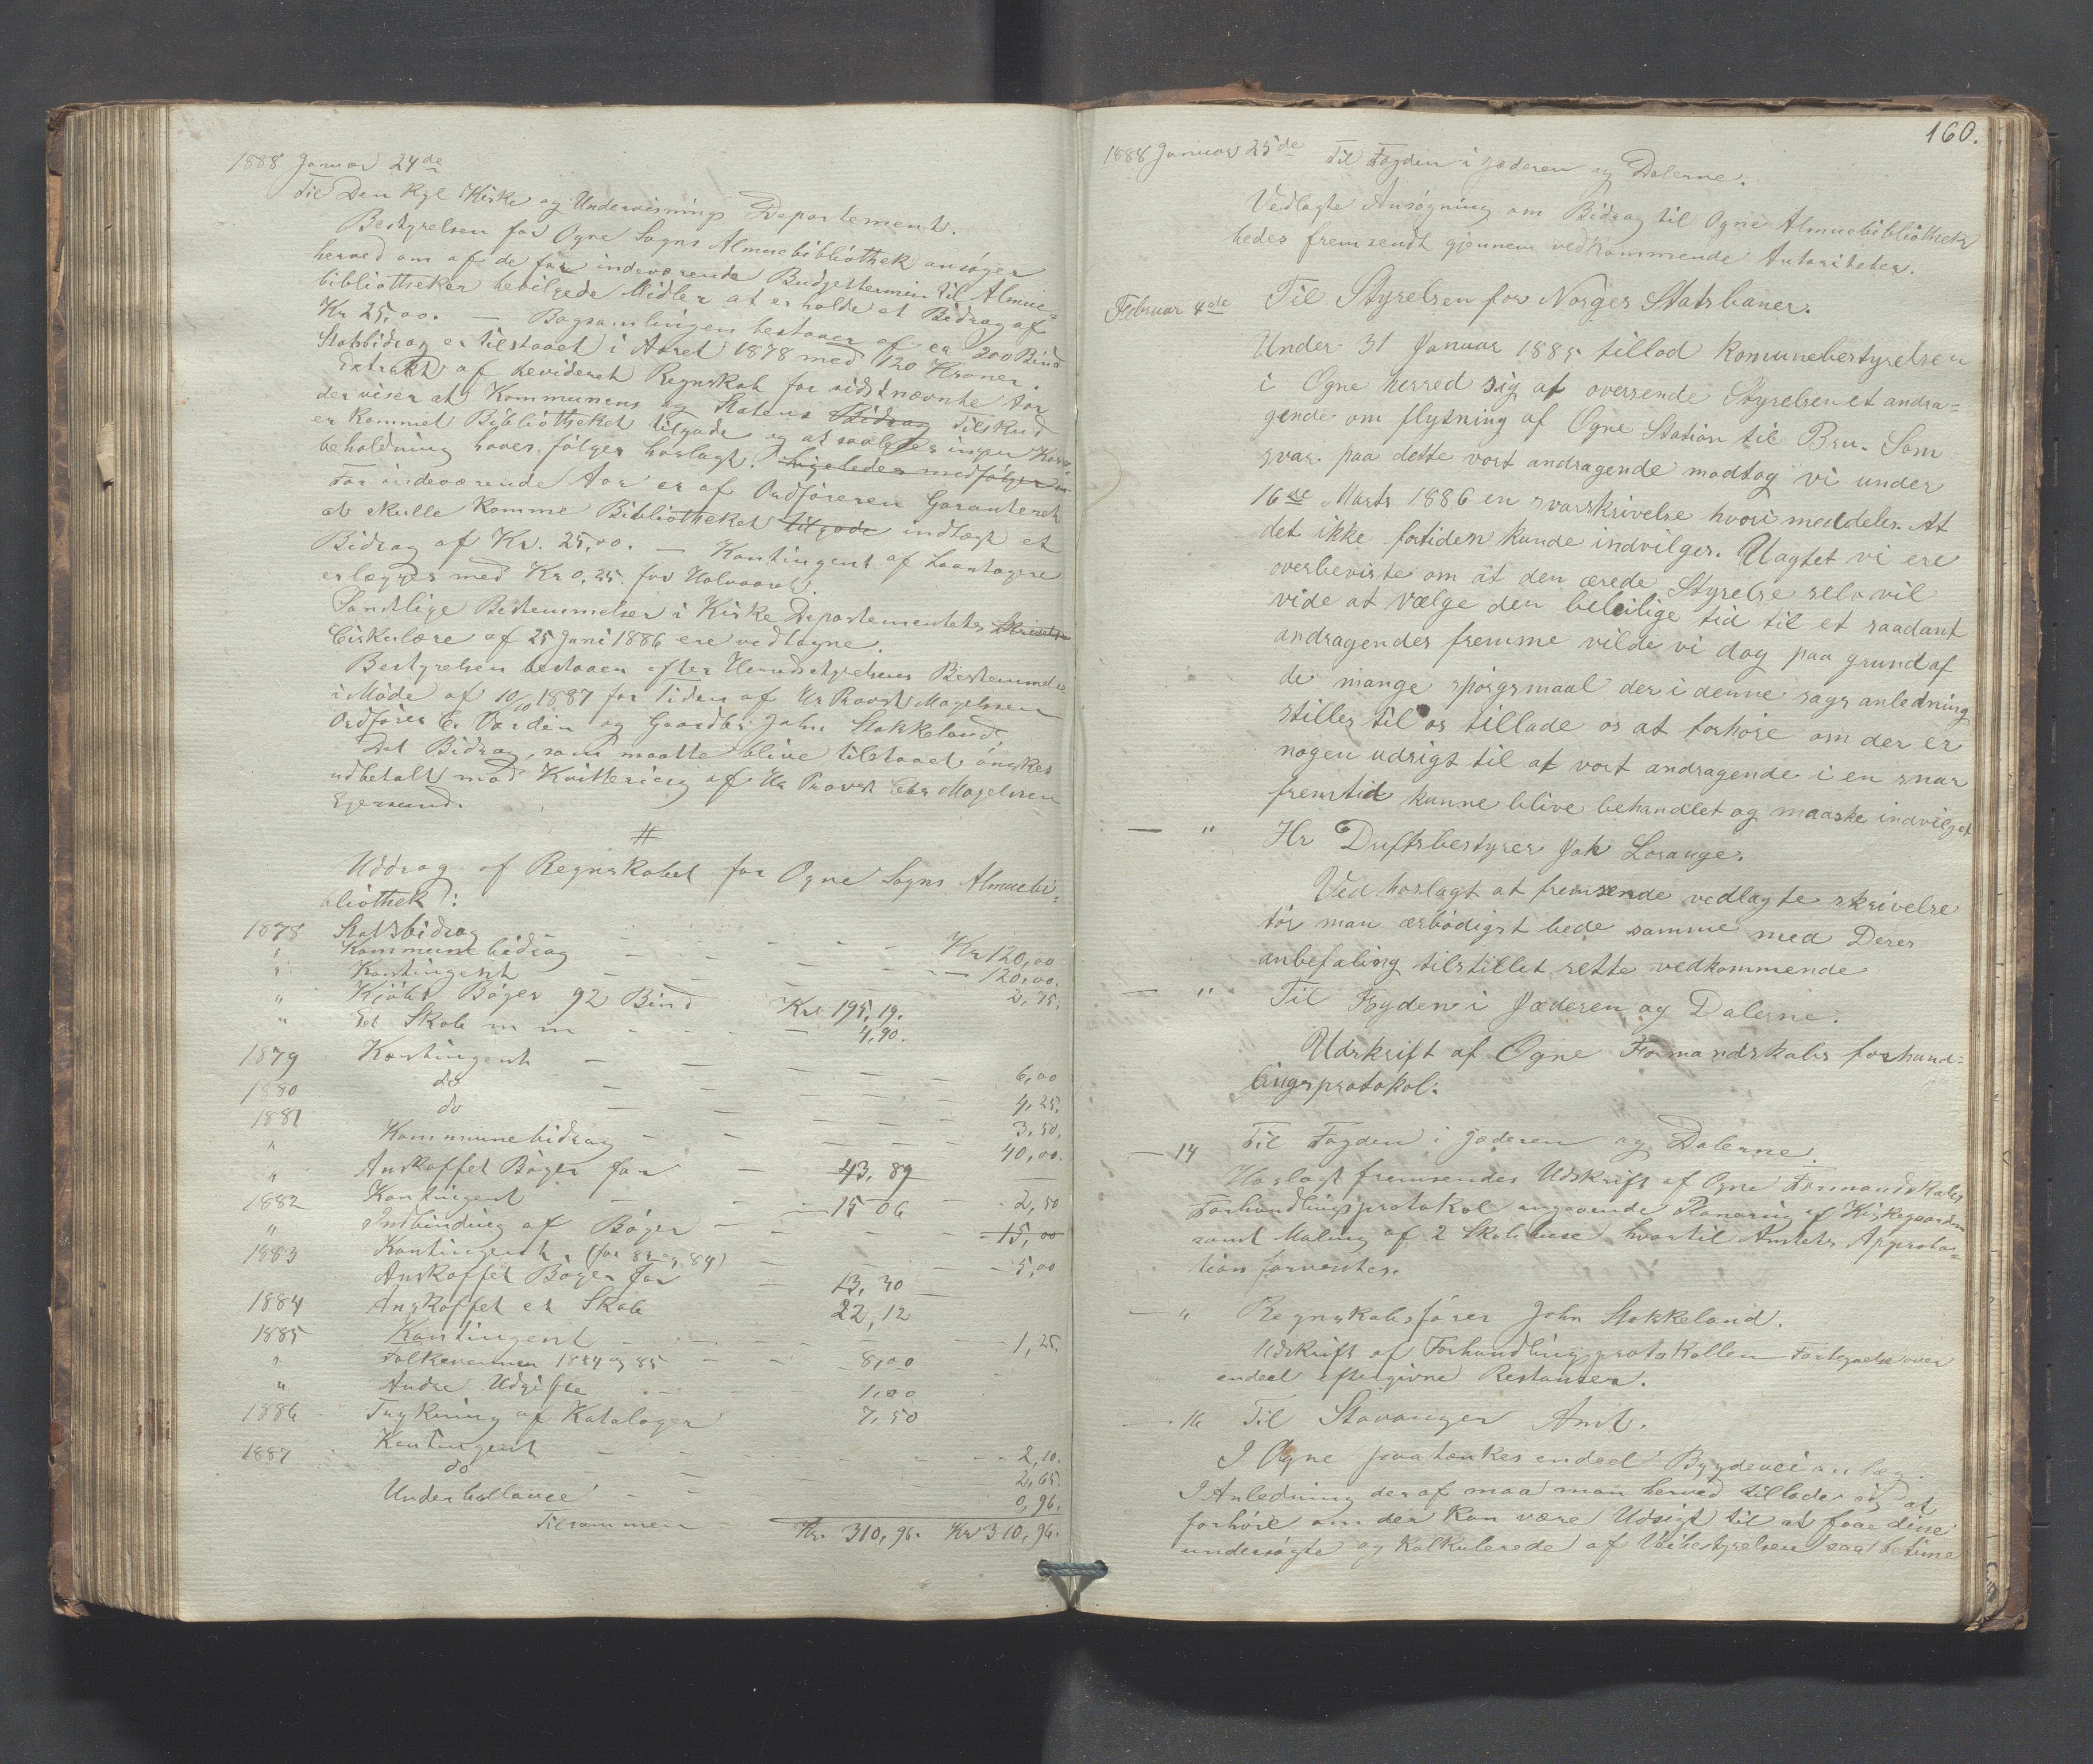 1888 Januar 24de
Til Den Kgl Kirke og Undervisnings Departement.
Bestyrelsen for Ogne Sogns Almuebibliothek ansøger
herved om af de for indeværende Budgettermin til Almue-
bibliotheker bevilgede Midler at erholde et Bidrag af
Kr 25,00. — Bogsamlingen bestaaer af ca 200 Bind
Statsbidrag er tilstaaet i Aaret 1878 med 120 Kroner.
Extrakt af Revideret Regnskab for sidstnævnte Aar
der viser at Kommunens og Statens Bidrag Tilskud
er kommet Bibliotheket tilgode og at saaledes ingen Kasse-
beholdning haves følger hoslagt. Ligeledes medfølger en
For indeværende Aar er af Ordføreren Garanteret
at skulle komme Bibliotheket tilgode indtægt et
Bidrag af Kr. 25,00. — Kontingent af Laantagere
erlægges med Kr 0,25. for Halvaaret.
Samtlige Bestemmelser i Kirke Departementets Skrivelse
Cirkulære af 25 Juni 1886 ere vedtagne.
Bestyrelsen bestaaer efter Herredsstyrelsens Bestemmelse
i Møde af 10/10 1887 for Tiden af Hr Provst Magelssen
Ordfører Er Værdin og Gaardbr John Stokkeland,
Det Bidrag, som maatte blive tilstaaet ønskes
udbetalt mod Kvittering af Hr Provst Chr Magelssen
Egersund.
#
Uddrag af Regnskabet for Ogne Sogns Almuebi-
bliothek:
1878 Statsbidrag — — — Kr 120,00
" Kommunebidrag — — — 120,00.
" Kontingent — — — 2,75.
" Kjøbt Bøger 92 Bind Kr 195,19.
" Et Skab m m — — 4,90.
1879 Kontingent — — — 6,00
1880 do — — — 4,25.
1881 do — — — 3,50.
" Kommunebidrag — — — 40,00.
" Anskaffet Bøger for — 43,89
1882 Kontingent — — — 2,50
" Indbinding af Bøger — 15 06 — 15,00
1883 Kontingent (for 83 og 84) — — 5,00
Anskaffet Bøger for — 13,30
1884 Anskaffet et Skab 22,12
1885 Kontingent — — — 1,25.
" Folkevennen 1884 og 85 — 8,00
" Andre Udgifte — 1,00
1886 Trykning af Kataloger 7,50
Kontingent — — — 2,10.
1887 do — — — 2,65.
Underballance — — 0,96.
Tilsammen — Kr. 310,96. Kr 310,96.
160.
1888 Januar 25de Til Fogden i Jæderen og Dalerne.
Vedlagte Ansøgning om Bidrag til Ogne Almuebibliothek
bedes fremsendt gjennem vedkommende Autoriteter.
Februar 4de Til Styrelsen for Norges Statsbaner.
Under 31 Januar 1885 tillod Komunebestyrelsen
i Ogne herred sig at oversende Styrelsen et andra-
gende om flytning af Ogne Station til Bru. Som
svar. paa dette vort andragende modtog vi under
16de Marts 1886 en svarskrivelse hvori meddeles. At
det ikke fortiden kunde indvilges. Uagtet vi ere
overbeviste om at den ærede Styrelse selv vil
vide at vælge den beleilige tid til et saadant
andragendes fremme vilde vi dog paa grund af
de mange spørgsmaal der i denne sags anledning
stilles til os tillade os at forhøre om der er
nogen udsigt til at vort andragende i en snar
fremtid kunne blive behandlet og maaske indvilget
— " Hr Driftsbestyrer Joh Lorange.
Ved hoslagt at fremsende vedlagte skrivelse
tør man ærbødigst bede samme med Deres
anbefaling tilstillet rette vedkommende
— " Til Fogden i Jæderen og Dalerne.
Udskrift af Ogne Formandskabs forhand-
lingsprotokol.
— 14 Til Fogden i Jæderen og Dalerne.
Hoslagt fremsendes Udskrift af Ogne Formandskabs
Forhandlingsprotokol angaaende Planering af Kirkegaarden
samt Maling af 2 Skolehuse hvortil Amtets Approba-
tion forventes.
— " Regnskabsfører John Stokkeland.
Udskrift af Forhandlingsprotokollen Fortegnelse over
endeel eftergivne Restanser.
— 16 Til Stavanger Amt.
I Ogne paatænkes endeel Bygdeveianlæg.
I Anledning deraf maa man herved tillade sig at
forhøre om der kan være Udsigt til at faae disse
undersøgte og kalkulerede af Veibestyrelsen saa betime